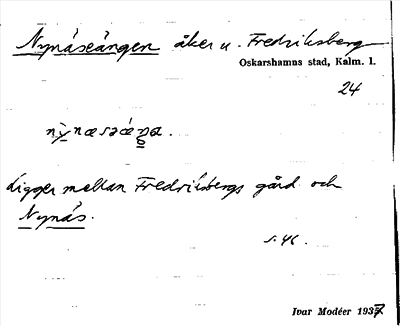 Nynäseängen åker u. Fredriksberg
Oskarshamns stad, Kalm. l.
24
Ligger mellan Fredriksbergs gård och
Nynäs.
s. 46.
Ivar Modéer 1937